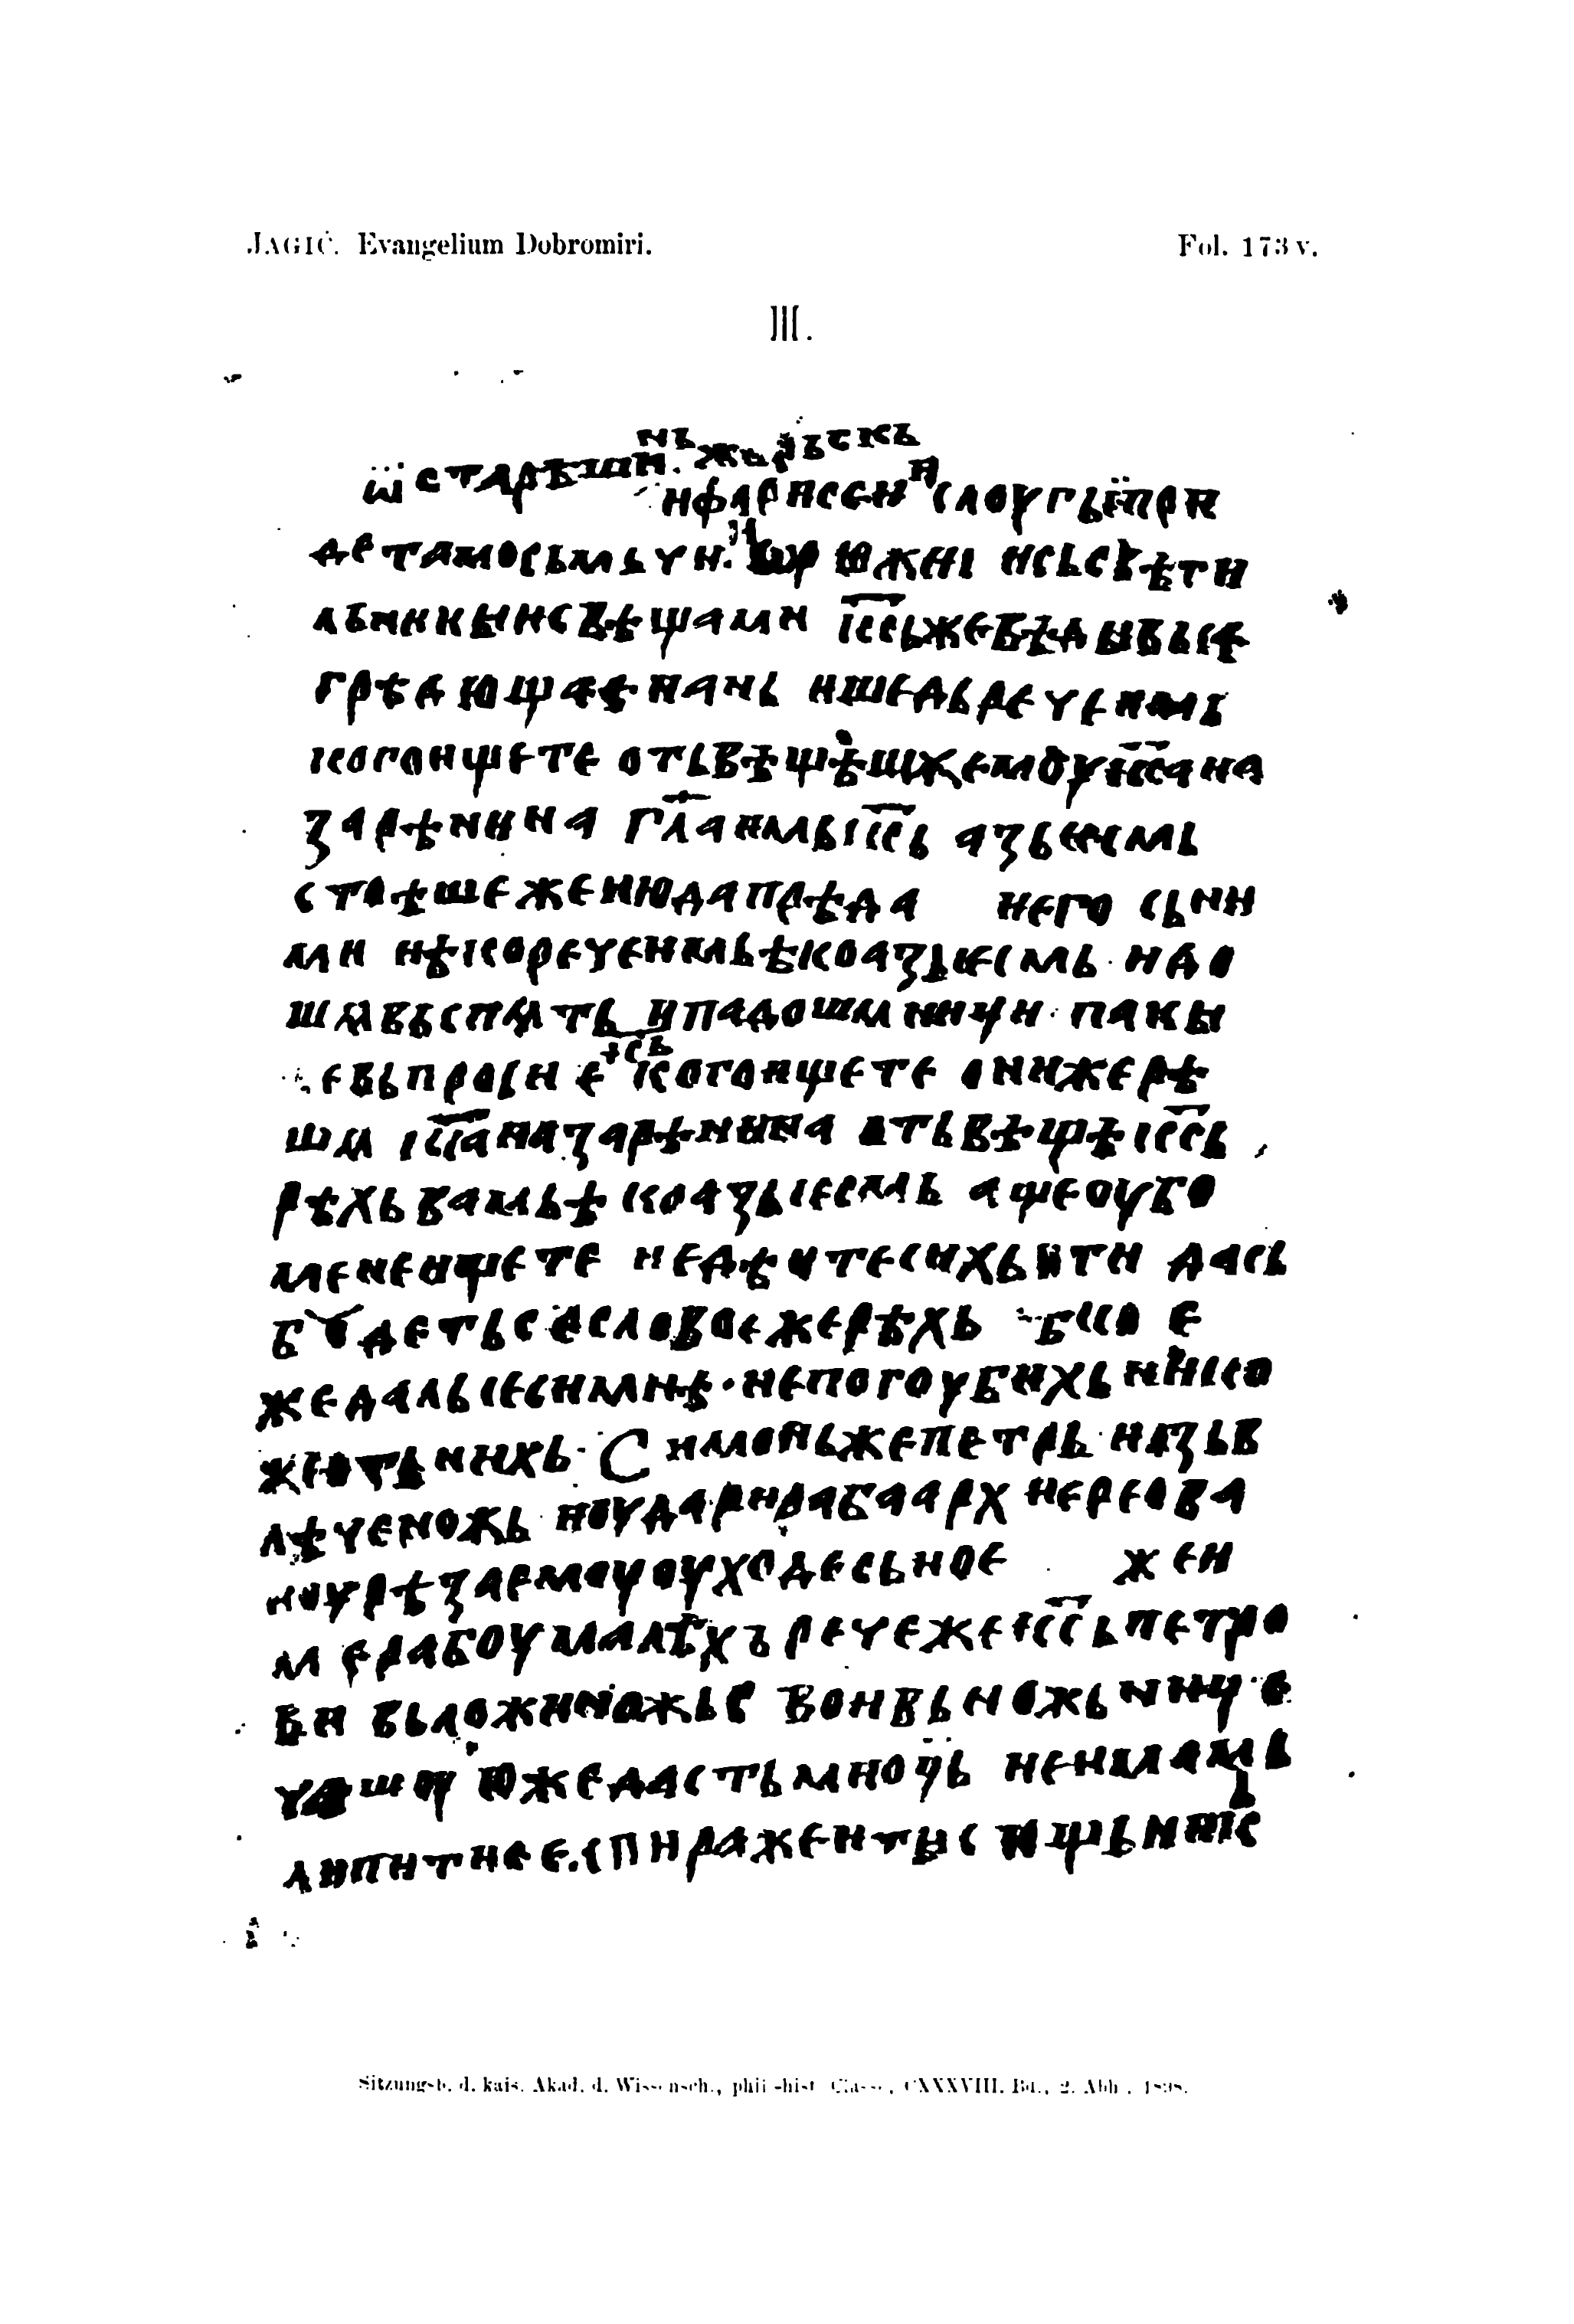 JAGIĆ. Evangelium Dobromiri. Fol. 173 v.
III.
нъ жьрьскъ
ѿ старѣши
и фарисеи слоугы при
де тамо сь мьчи. ѡрюжиі и сь свѣти
льникы и свѣщами і҃сь же вѣды вьсѣ
грѣдющаѣ на нь ишедь рече имь
кого ищете отьвѣщѣшѫ емоу і҃са на
зарѣнина гл҃а имь і҃сь азь есмь
стоѣше же июда прѣда него сь ни
ми ѣко рече имь ѣко азь ѥсмь идо
шѧ вьспѧть и падошѧ ници пакы
е вьпроси е кого ищете они же рѣ
шѧ і҃са назарѣнина отьвѣщѣ і҃сь
рѣхь вамь ѣко азь ѥсмь аще оубо
мене ищете не дѣите сихь ити да сь
бѫдеть се слово еже рѣхь ѣко е
же даль ѥси мнѣ · не погоубихь ни ко
го отъ нихь · Симонь же петрь · назьв
лѣче ножь · и оудари раба архиереова
и оурѣза емоу оухо десьное же и
мѧ рабоу малъхъ рече же і҃сь петро
ви вьложи ножь с вон вь ножьницѫ
чашѫ юже дасть мноць не имамь
ли пити ее. спира же и тысѫщьникь
Sitzungsb. d. kais. Akad. d. Wissensch., phil.-hist. Classe, CXXXVIII. Bd., 2. Abh. 1898.